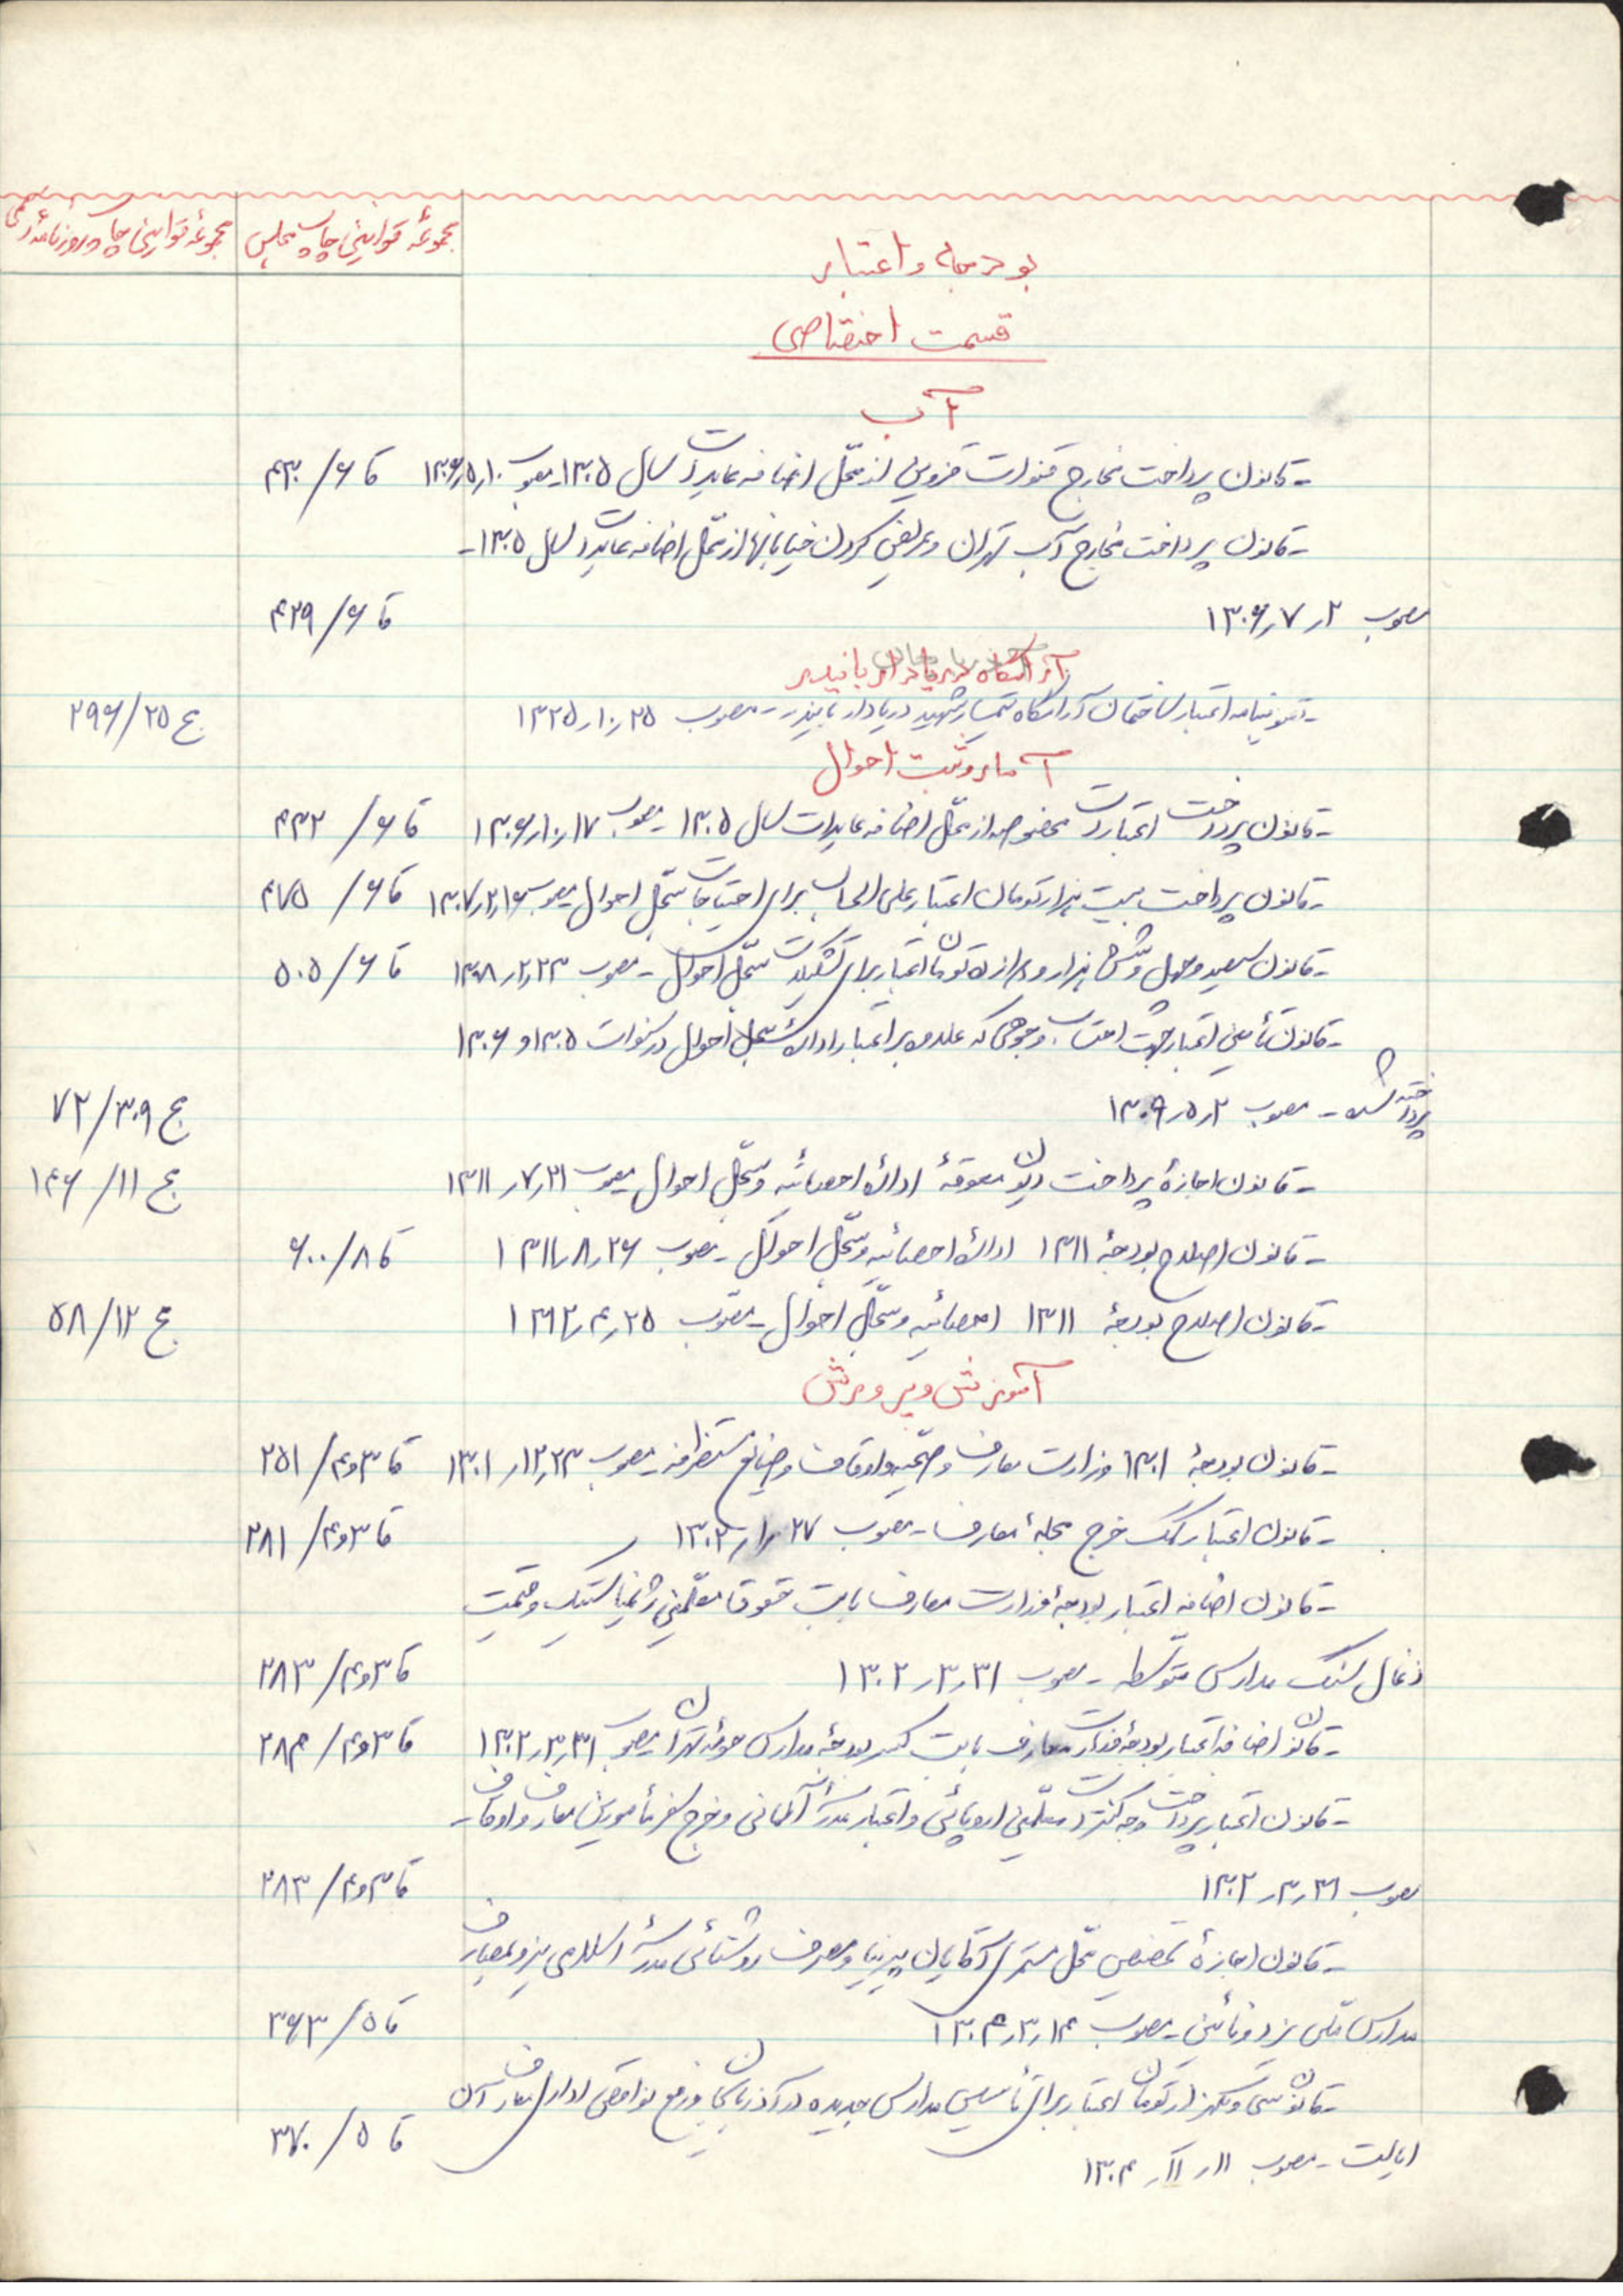 مجموعهٔ قوانین چاپ مجلس
مجموعهٔ قوانین چاپ روزنامهٔ رسمی
بودجه و اعتبار
قسمت اختصاصی
آب
ـ قانون پرداخت مخارج قنوات قزوین از محل اضافه عایدات سال ۱۳۰۵ ـ مصوب ۱۰ر۵ر۱۳۰۶ قا ۶/ ۴۳۰
ـ قانون پرداخت مخارج آب تهران و عریض کردن خیابانها از محل اضافه عایدات سال ۱۳۰۵ ـ
مصوب ۲ر۷ر۱۳۰۶ قا ۶/ ۴۲۹
آرامگاه دریادار بایندر
ـ تصویبنامه اعتبار ساختمان آرامگاه تیمسار شهید دریادار بایندر ـ مصوب ۲۵ر۱۰ر۱۳۲۵ ج ۲۵/ ۲۹۶
آمار و ثبت احوال
ـ قانون پرداخت اعتبارات مخصوصه از محل اضافه عایدات سال ۱۳۰۵ ـ مصوب ۱۷ر۱۰ر۱۳۰۶ قا ۶/ ۴۳۲
ـ قانون پرداخت بیست هزار تومان اعتبار علی الحساب برای احتیاجات سجل احوال مصوب ۱۶ر۲ر۱۳۰۷ قا ۶/ ۴۷۵
ـ قانون سیصد و چهل و شش هزار و دوازده تومان اعتبار برای تشکیلات سجل احوال ـ مصوب ۲۳ر۲ر۱۳۰۸ قا ۶/ ۵۰۵
ـ قانون تأمین اعتبار جهت احتساب وجوهی که علاوه بر اعتبار ادارهٔ سجل احوال در سنوات ۱۳۰۵ و ۱۳۰۶
پرداخته شده ـ مصوب ۲ر۵ر۱۳۰۹ ج ۳۰۹/ ۷۲
ـ قانون اجازهٔ پرداخت دیون معوقهٔ ادارهٔ احصائیه و سجل احوال مصوب ۲۱ر۷ر۱۳۱۱ ج ۱۱/ ۱۴۶
ـ قانون اصلاح بودجهٔ ۱۳۱۱ ادارهٔ احصائیه و سجل احوال ـ مصوب ۲۶ر۸ر۱۳۱۱ قا ۸/ ۶۰۰
ـ قانون اصلاح بودجهٔ ۱۳۱۱ احصائیه و سجل احوال ـ مصوب ۲۵ر۴ر۱۳۱۲ ج ۱۲/ ۵۸
آموزش و پرورش
ـ قانون بودجهٔ ۱۳۰۱ وزارت معارف و صحیه و اوقاف و صنایع مستظرفه ـ مصوب ۲۳ر۱۲ر۱۳۰۱ قا ۳و۴/ ۲۵۱
ـ قانون اعتبار کمک خرج مجلهٔ معارف ـ مصوب ۲۷ر۱ر۱۳۰۲ قا ۳و۴/ ۲۸۱
ـ قانون اضافه اعتبار بودجهٔ وزارت معارف بابت حقوق معلمین ژیمناستیک و قیمت
ذغال سنگ مدارس متوسطه ـ مصوب ۳۱ر۳ر۱۳۰۲ قا ۳و۴/ ۲۸۳
ـ قانون اضافه اعتبار بودجهٔ وزارت معارف بابت کسر بودجهٔ مدارس حومهٔ تهران مصوب ۳۱ر۳ر۱۳۰۲ قا ۳و۴/ ۲۸۴
ـ قانون اعتبار پرداخت وجه کنترات معلمین اروپائی و اعتبار مدرسهٔ آلمانی و خرج سفر مأمورین معارف و اوقاف ـ
مصوب ۳۱ر۳ر۱۳۰۲ قا ۳و۴/ ۲۸۳
ـ قانون اجازهٔ تخصیص محل مستمری آقایان پیرنیا و مصرف روشنائی مدرسهٔ اسلامی یزد بمصارف
مدارس ملی یزد و نائین ـ مصوب ۱۴ر۳ر۱۳۰۴ قا ۵/ ۳۶۳
ـ قانون سی و یکهزار تومان اعتبار برای تأسیس مدارس جدیده در آذربایجان و رفع نواقص اداری معارف آن
ایالت ـ مصوب ۱۱ر۱۱ر۱۳۰۴ قا ۵/ ۳۷۰